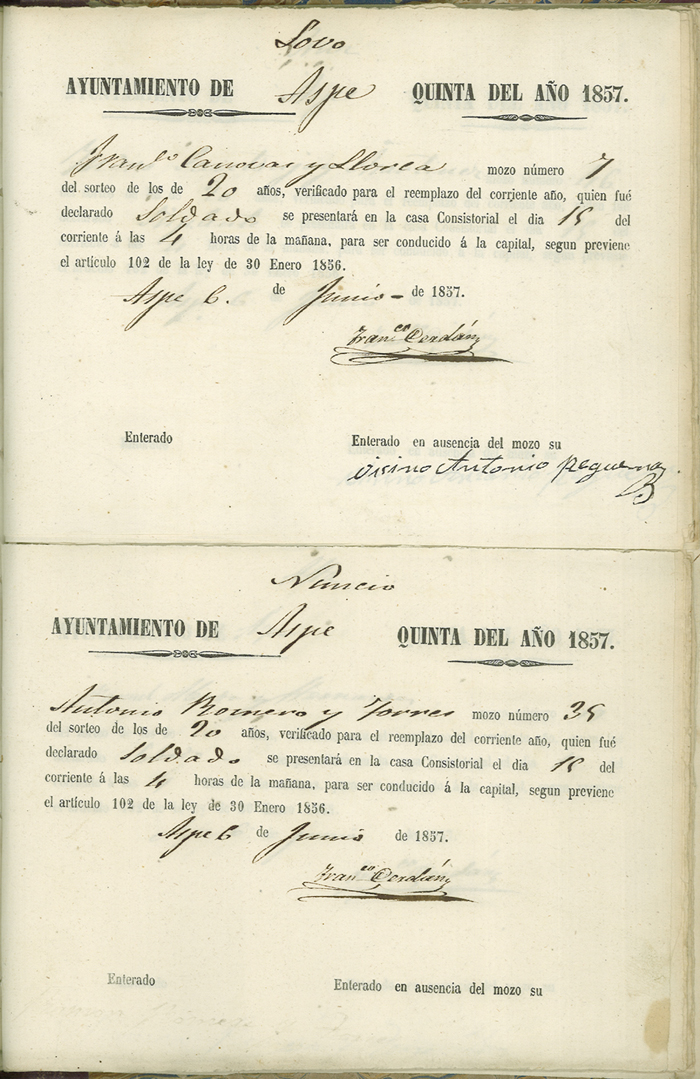 Lovo
AYUNTAMIENTO DE Aspe QUINTA DEL AÑO 1857.
Franco Canovas y Llorca mozo número 7
del sorteo de los de 20 años, verificado para el reemplazo del corriente año, quien fué
declarado Soldado se presentará en la casa Consistorial el dia 15 del
corriente á las 4 horas de la mañana, para ser conducido á la capital, segun previene
el artículo 102 de la ley de 30 Enero 1856.
Aspe 6. de Junio de 1857.
Franco Cerdán
Enterado Enterado en ausencia del mozo su
visino Antonio peguera
Nuncio
AYUNTAMIENTO DE Aspe QUINTA DEL AÑO 1857.
Antonio Romero y Torres mozo número 35
del sorteo de los de 20 años, verificado para el reemplazo del corriente año, quien fué
declarado Soldado se presentará en la casa Consistorial el dia 15 del
corriente á las 4 horas de la mañana, para ser conducido á la capital, segun previene
el artículo 102 de la ley de 30 Enero 1856.
Aspe 6 de Junio de 1857.
Franco Cerdán
Enterado Enterado en ausencia del mozo su